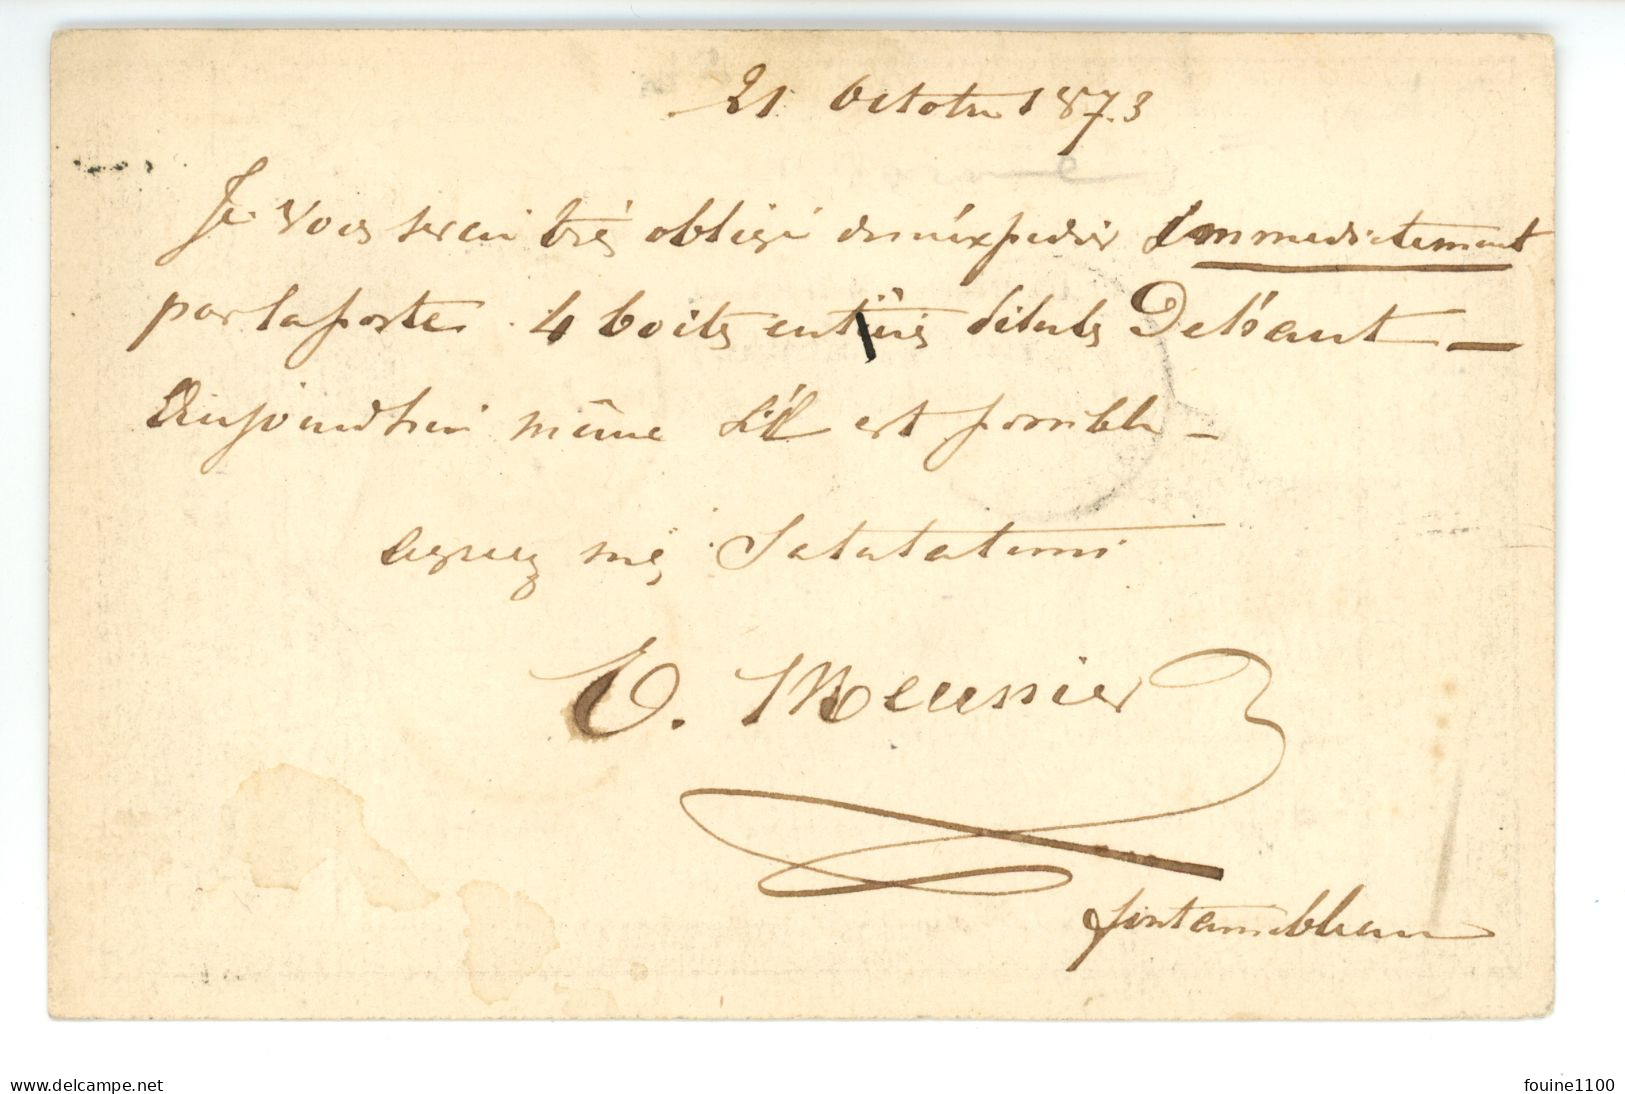 21 Octobre 1873
Je vous serai très obligé de m'expédier Immédiatement
par la poste 4 boites entières pilules Dehaut —
Aujourdhui même s'il est possible —
agréez mes Salutations
E. Meunier
fontainebleau
delcampe.net
fouine1100